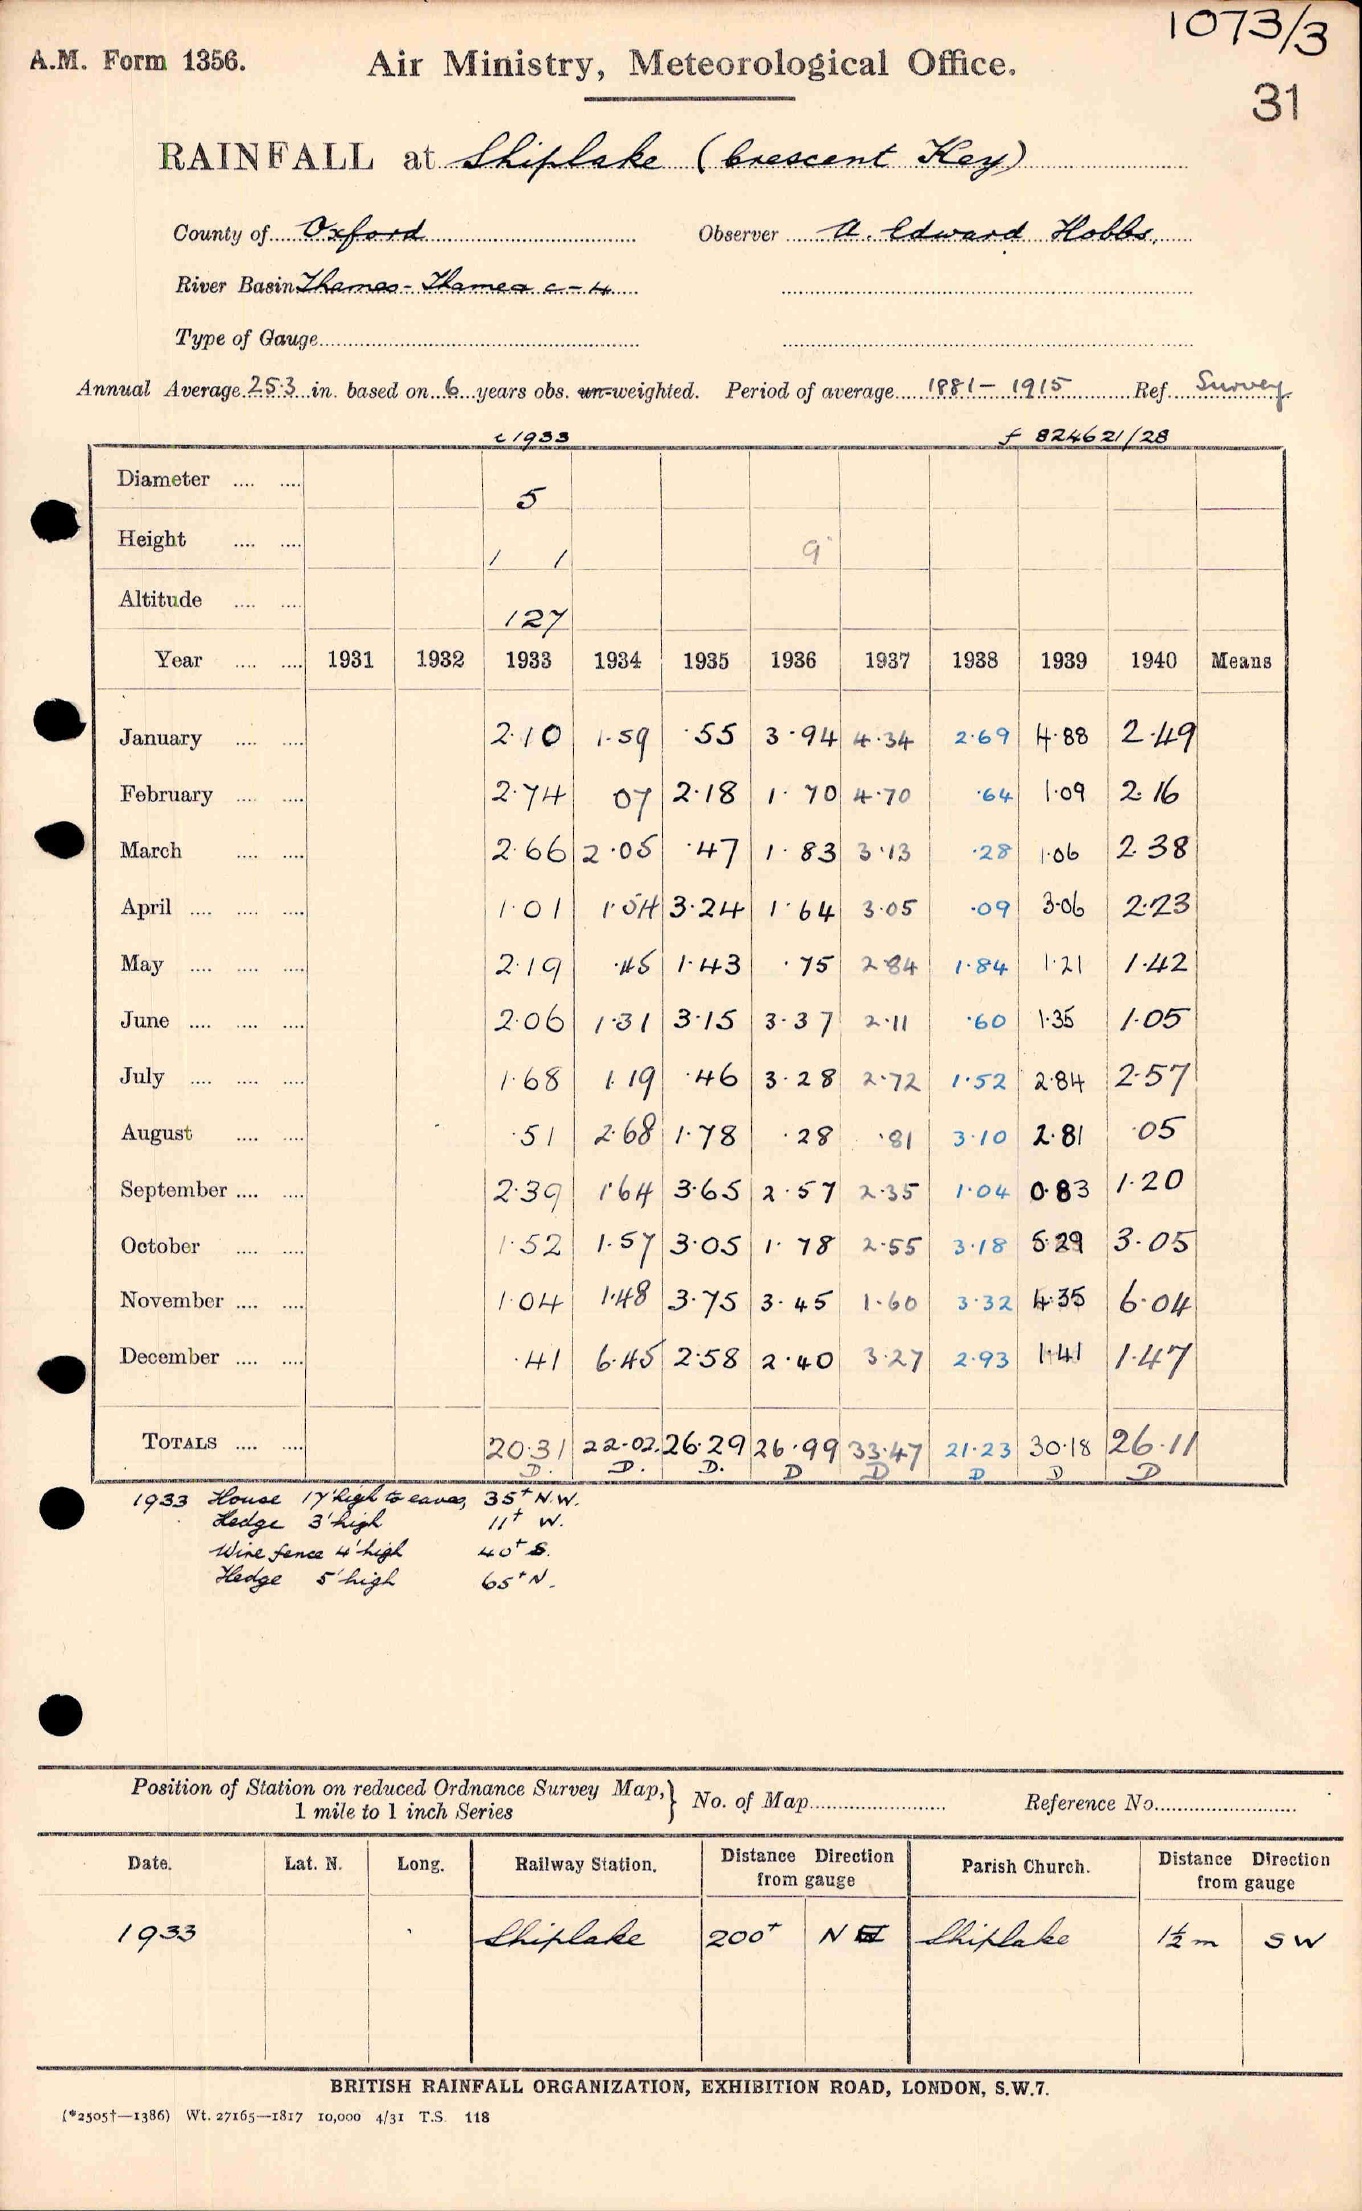 1073/3
A.M. Form 1356. Air Ministry, Meteorological Office.
31
RAINFALL at Shiplake (Crescent Key)
County of Oxford Observer A. Edward Hobbs.
River Basin Thames - Thames c-4
Type of Gauge
Annual Average 25.3 in. based on 6 years obs. un-weighted. Period of average 1881-1915 Ref. Survey
c 1933 f 824621/28
Diameter .... .... 5
Height .... .... 1 1 9"
Altitude .... .... 127
Year .... .... 1931 1932 1933 1934 1935 1936 1937 1938 1939 1940 Means
January .... .... 2.10 1.59 .55 3.94 4.34 2.69 4.88 2.49
February .... .... 2.74 07 2.18 1.70 4.70 .64 1.09 2.16
March .... .... 2.66 2.05 .47 1.83 3.13 .28 1.06 2.38
April .... .... .... 1.01 1.54 3.24 1.64 3.05 .09 3.06 2.23
May .... .... .... 2.19 .45 1.43 .75 2.84 1.84 1.21 1.42
June .... .... .... 2.06 1.31 3.15 3.37 2.11 .60 1.35 1.05
July .... .... .... 1.68 1.19 .46 3.28 2.72 1.52 2.84 2.57
August .... .... .51 2.68 1.78 .28 .81 3.10 2.81 .05
September .... .... 2.39 1.64 3.65 2.57 2.35 1.04 0.83 1.20
October .... .... 1.52 1.57 3.05 1.78 2.55 3.18 5.29 3.05
November .... .... 1.04 1.48 3.75 3.45 1.60 3.32 4.35 6.04
December .... .... .41 6.45 2.58 2.40 3.27 2.93 1.41 1.47
TOTALS .... .... 20.31 22.02 26.29 26.99 33.47 21.23 30.18 26.11
D. D. D. D D D D D
1933 House 17' high to eaves, 35+ N.W.
Hedge 3' high 11+ W.
Wire fence 4' high 40+ S.
Hedge 5' high 65+ N.
Position of Station on reduced Ordnance Survey Map, } No. of Map Reference No.
1 mile to 1 inch Series
Date. Lat. N. Long. Railway Station. Distance Direction from gauge Parish Church. Distance Direction from gauge
1933 Shiplake 200+ N Shiplake 1½ m SW
BRITISH RAINFALL ORGANIZATION, EXHIBITION ROAD, LONDON, S.W.7.
(*2505†—1386) Wt. 27165—1817 10,000 4/31 T.S. 118